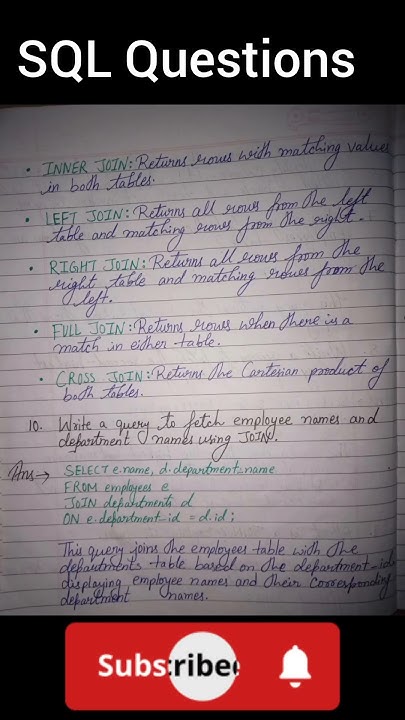 SQL Questions
• INNER JOIN: Returns rows with matching values
in both tables.
• LEFT JOIN: Returns all rows from the left
table and matching rows from the right.
• RIGHT JOIN: Returns all rows from the
right table and matching rows from the
left.
• FULL JOIN: Returns rows when there is a
match in either table.
• CROSS JOIN: Returns the Cartesian product of
both tables.
10. Write a query to fetch employee names and
department names using JOIN.
Ans→ SELECT e.name, d.department_name
FROM employees e
JOIN departments d
ON e.department_id = d.id;
This query joins the employees table with the
departments table based on the department_id
displaying employee names and their corresponding
department names.
Subscribe